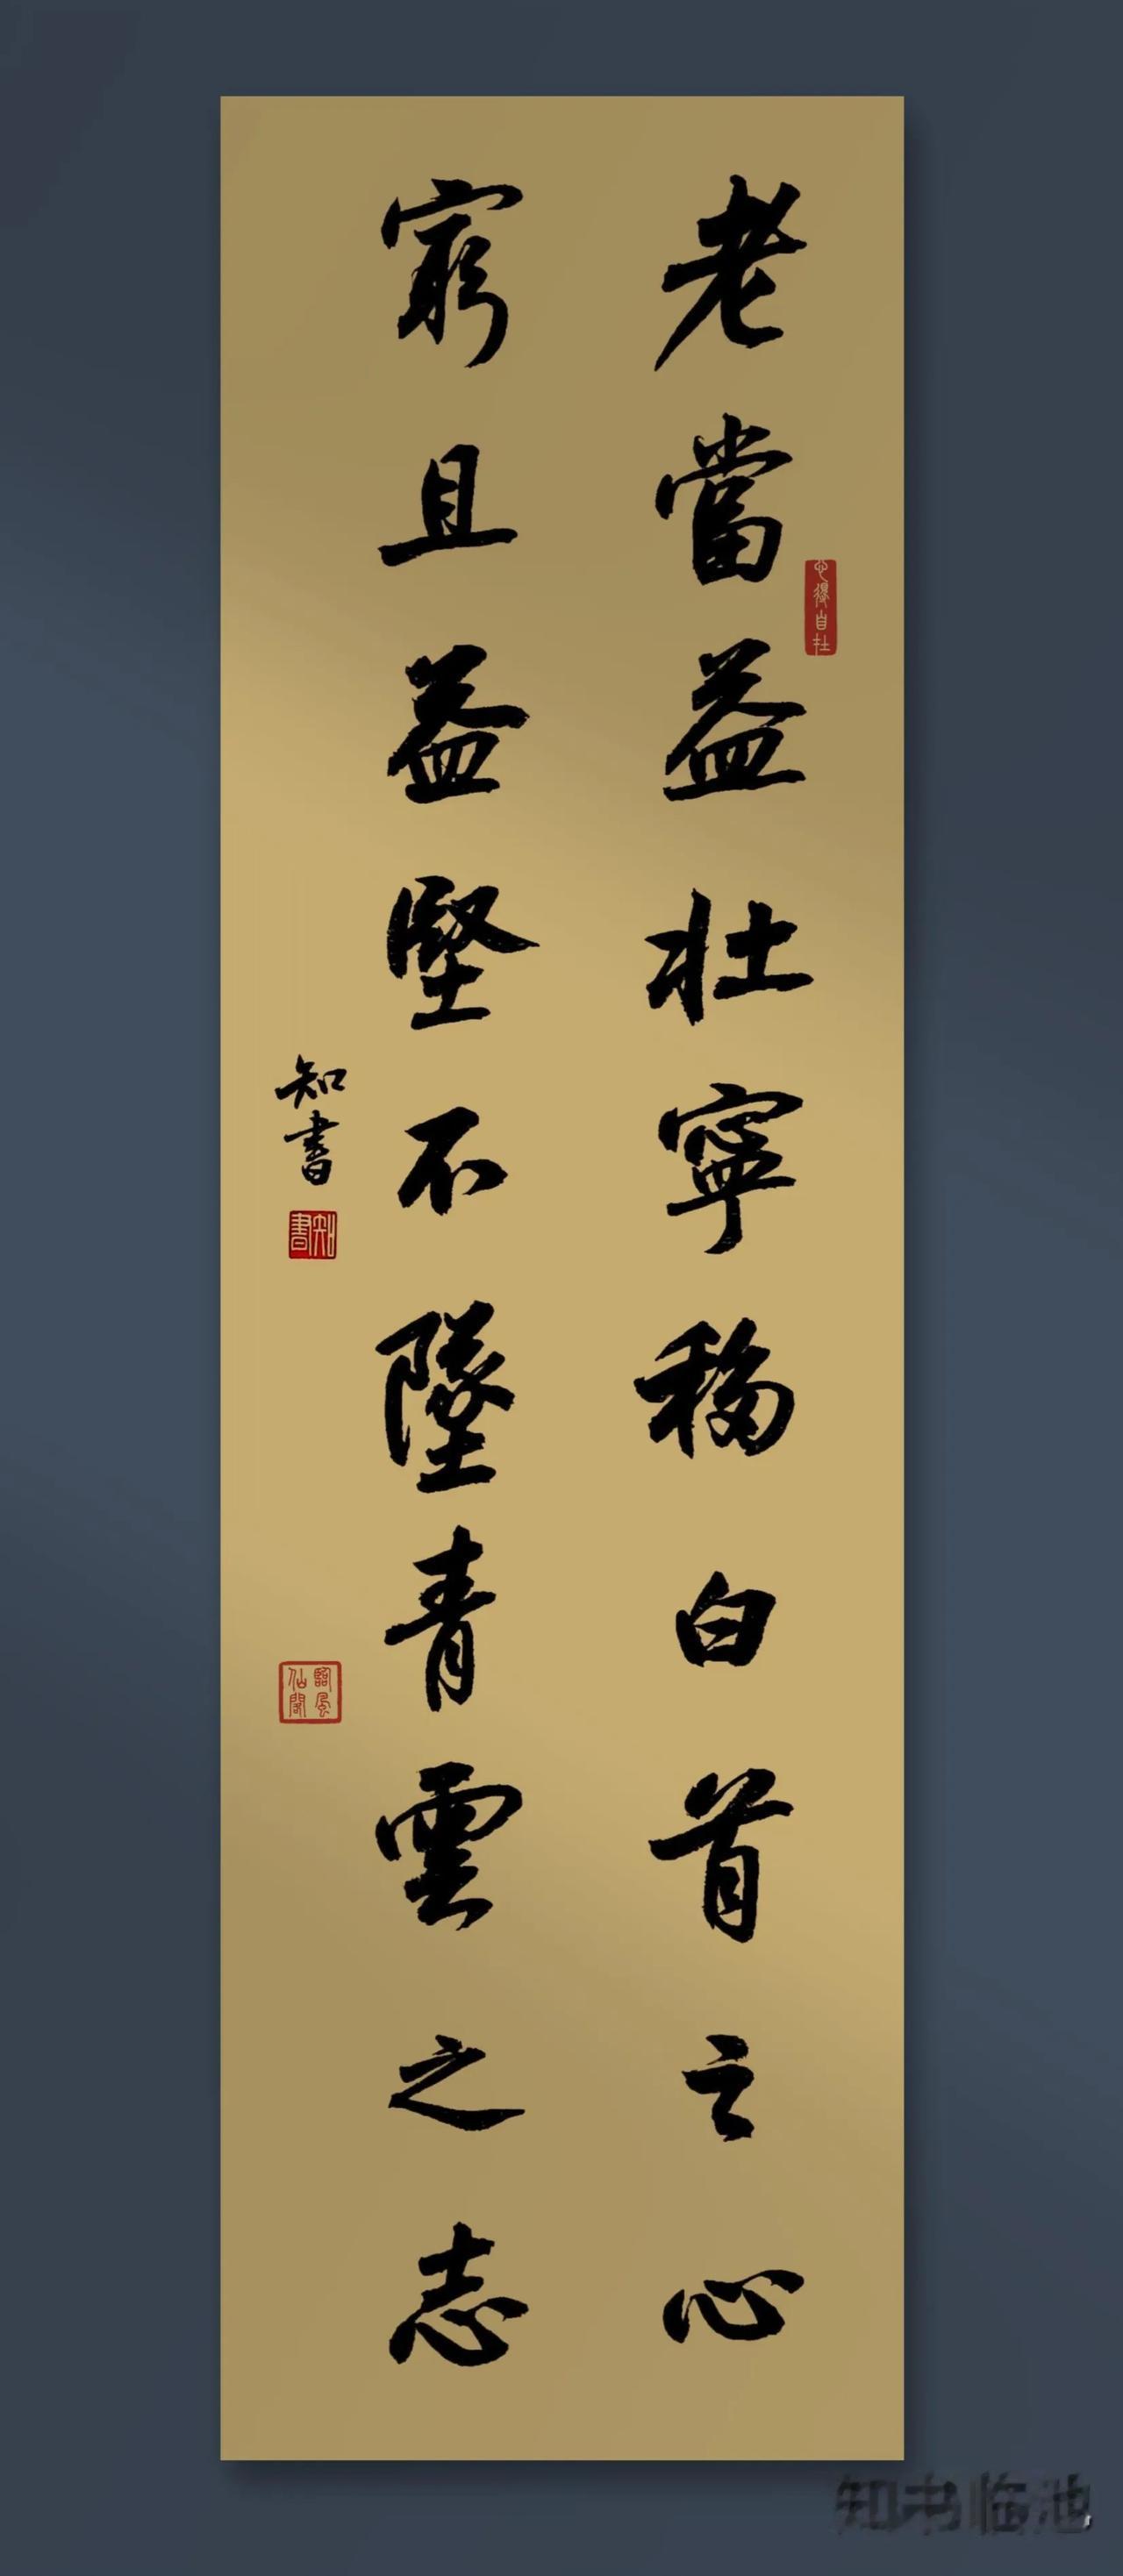 老當益壯寧移白首之心
窮且益堅不墜青雲之志
知書
心得自在
知書
臨風仙閣
知书临池